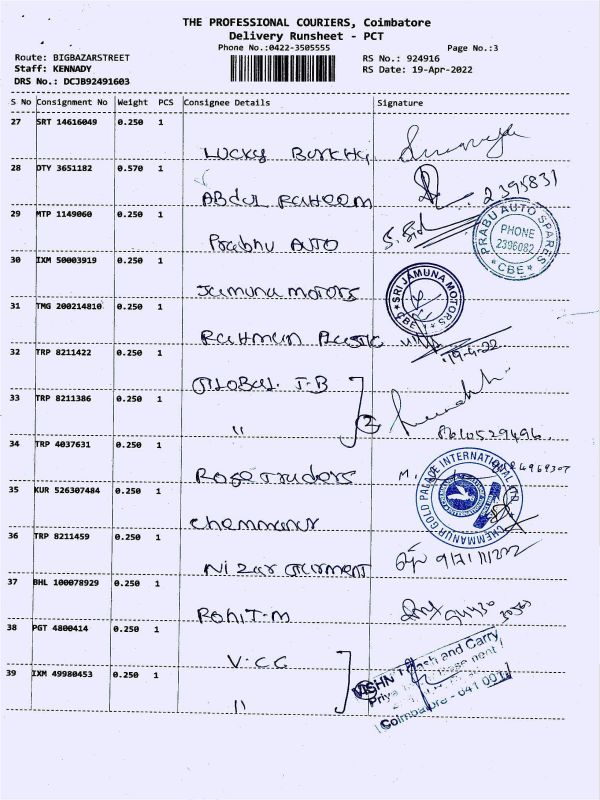 THE PROFESSIONAL COURIERS, Coimbatore
Delivery Runsheet - PCT
Phone No.:0422-3505555 Page No.:3
Route: BIGBAZARSTREET RS No.: 924916
Staff: KENNADY RS Date: 19-Apr-2022
DRS No.: DCJB92491603
S No Consignment No Weight PCS Consignee Details Signature
27 SRT 14616049 0.250 1
Lucky
28 DTY 3651182 0.570 1
Abdul Raheem 2395831
29 MTP 1149060 0.250 1
Prabhu Auto S. Sid
PRABU AUTO SPARES
PHONE
2396082
CBE
30 IXM 50003919 0.250 1
Jamuna motors
SRI JAMUNA MOTORS
CBE
31 TMG 200214810 0.250 1
Rahman Plastic
19-4-22
32 TRP 8211422 0.250 1
Global T-B
33 TRP 8211386 0.250 1
" 2
8610529496
34 TRP 4037631 0.250 1
Rose Traders M.
CHEMMANUR GOLD PALACE INTERNATIONAL LTD
35 KUR 526307484 0.250 1
Chemmanur
36 TRP 8211459 0.250 1
Nizar Garment
37 BHL 100078929 0.250 1
Rohit-M
38 PGT 4800414 0.250 1
V.CC
39 IXM 49980453 0.250 1
"
VISHN Cash and Carry
Priya
Coimbatore - 641 001